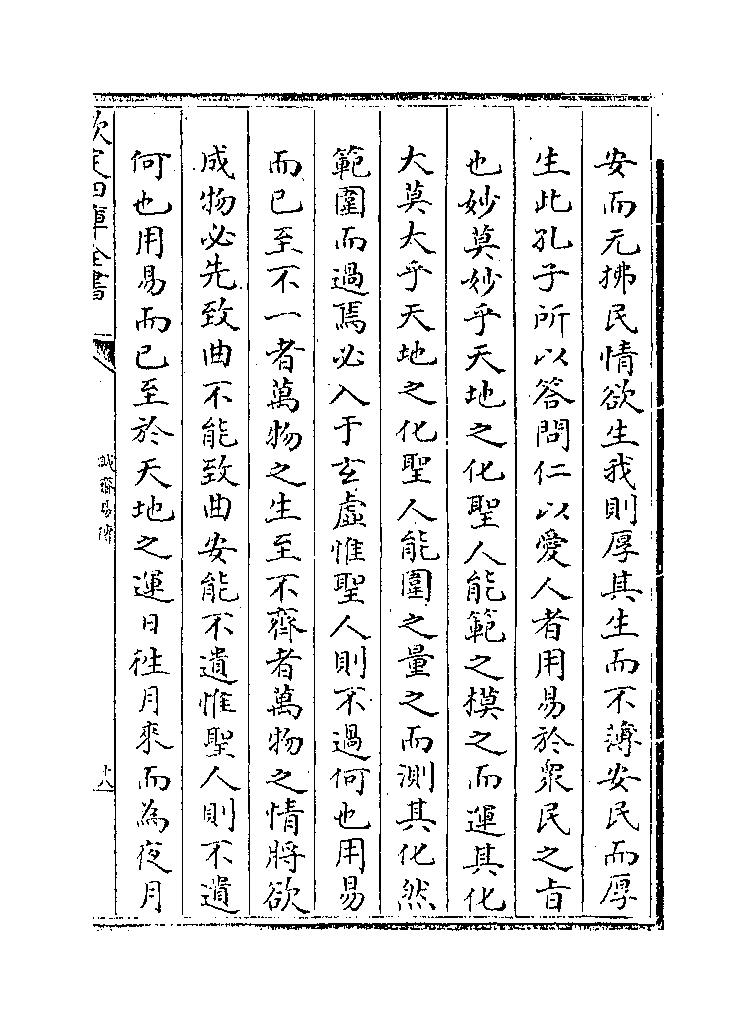 安而无拂民情欲生我則厚其生而不薄安民而厚
生此孔子所以答問仁以愛人者用易於衆民之旨
也妙莫妙乎天地之化聖人能範之模之而運其化
大莫大乎天地之化聖人能圍之量之而測其化然
範圍而過焉必入于玄虛惟聖人則不過何也用易
而已至不一者萬物之生至不齊者萬物之情將欲
成物必先致曲不能致曲安能不遺惟聖人則不遺
何也用易而已至於天地之運日徃月來而為夜月
欽定四庫全書
誠齋易傳
十八